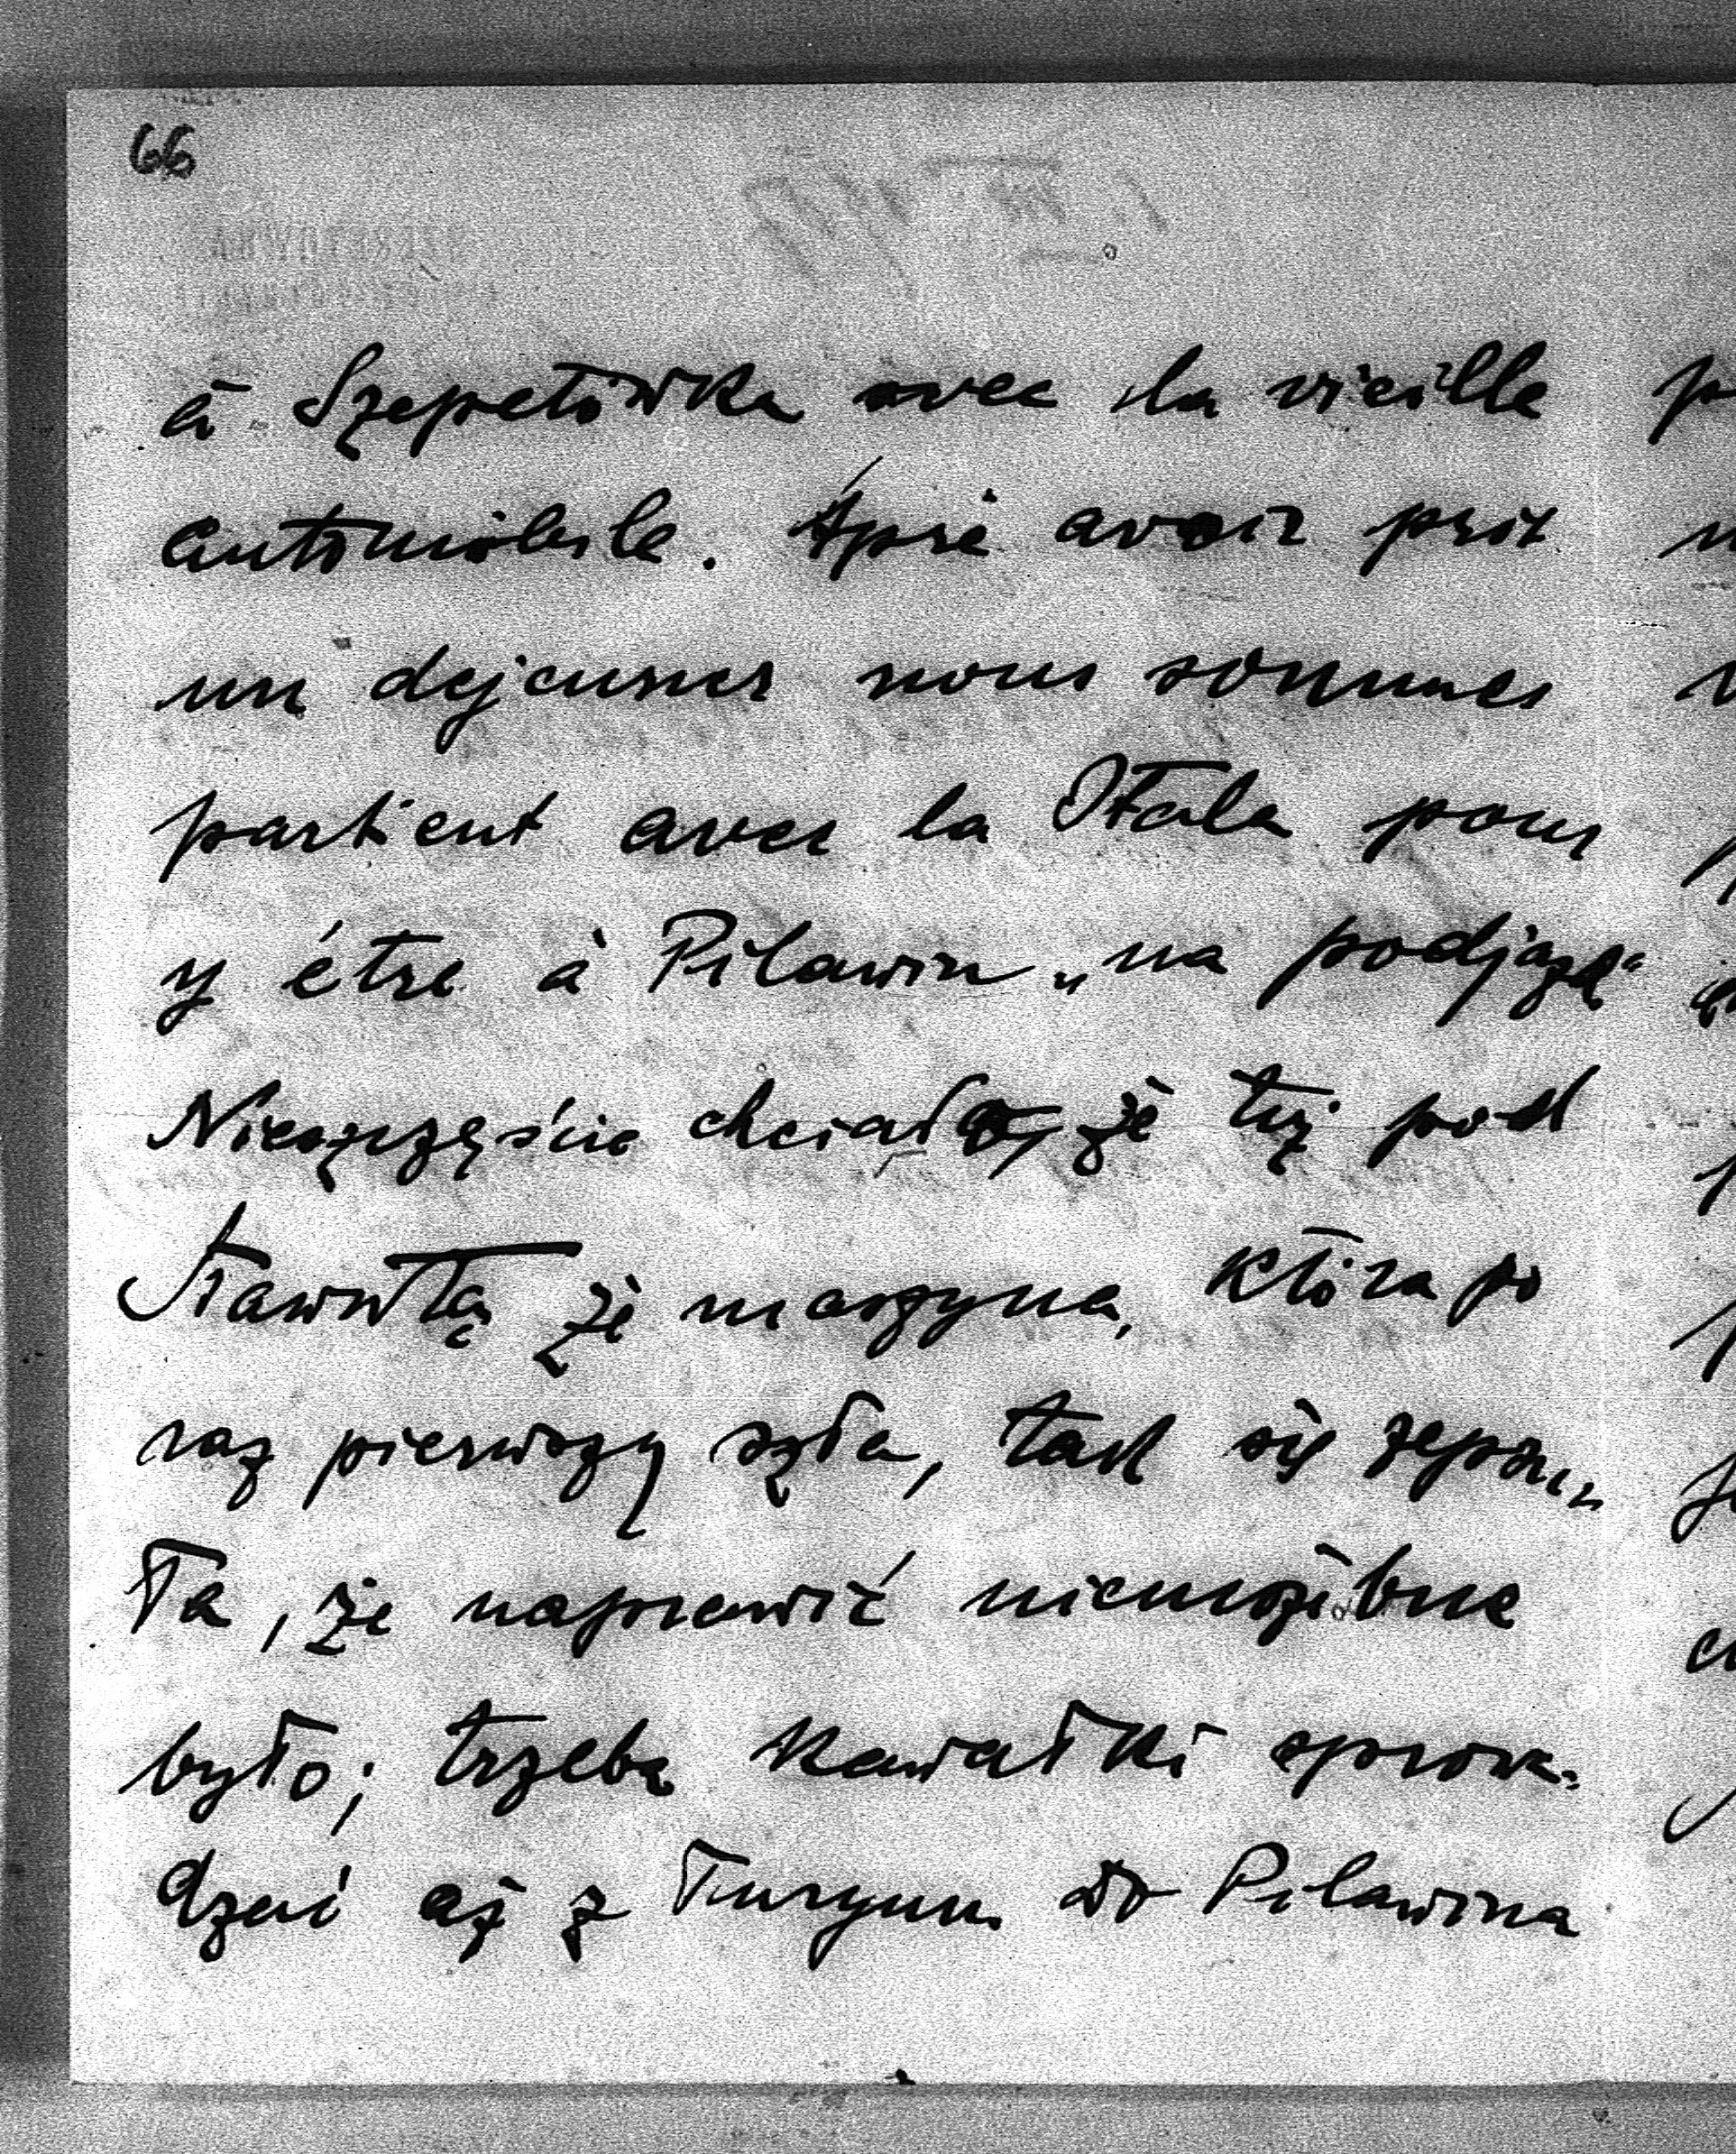 66
à Szepetówka avec la vieille
automobile. Apré avoir prit
un dejeuner nous sommes
partient avec la Itala pour
y étre à Pilawin „na podjazd"
Nieszczęście chciało, że tuż pod
że maszyna, która po
raz pierwszy szła, tak się zepsu„
ła, że naprawić niemożibne
było; trzeba kawałki sprowa„
dzać aż z Turynu do Pilawina